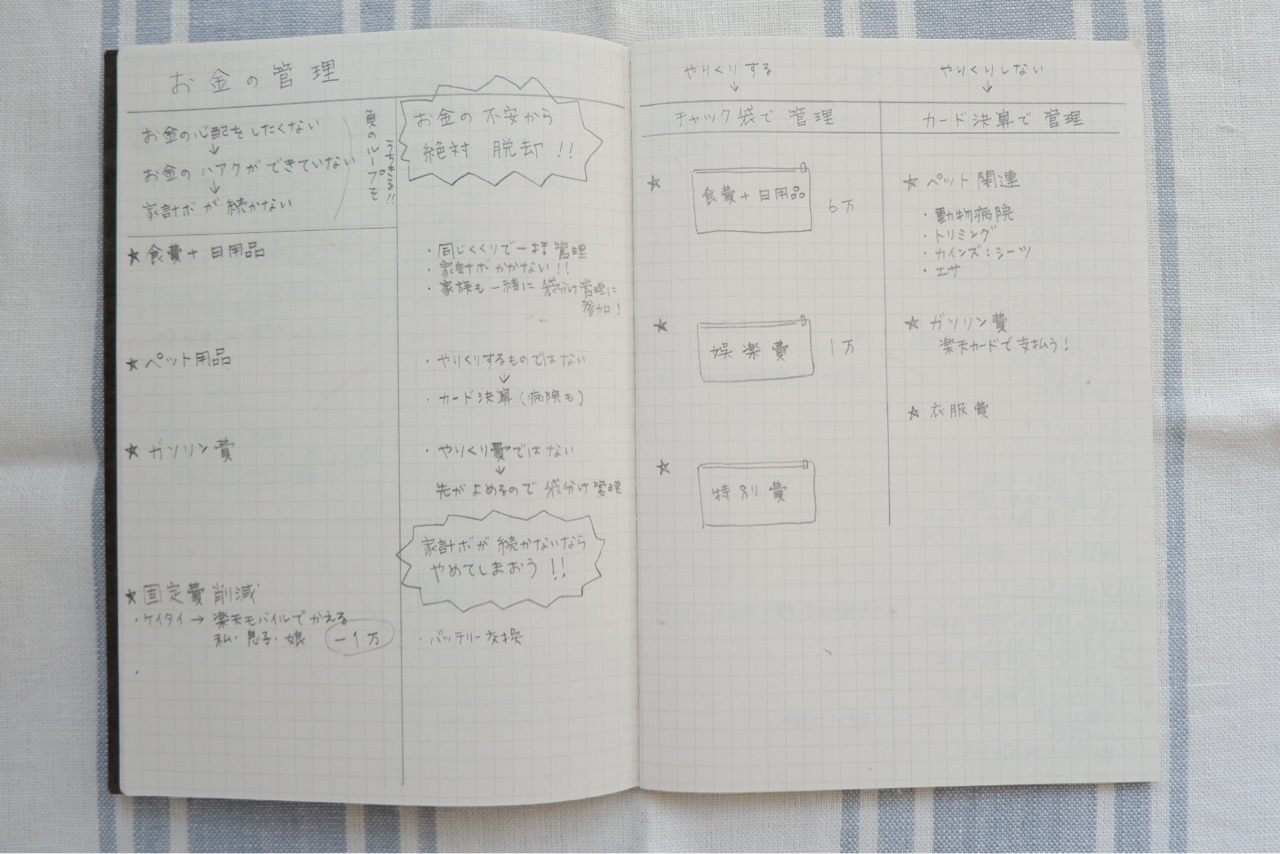 お金の管理
お金の心配をしたくない
↓
お金のハアクができていない
↓
家計ボが続かない
負のループを
うちきる!!
お金の不安から
絶対 脱却!!
★食費+日用品
・同じくくりで一括管理
・家計ボかかない!!
・家族も一緒に袋分け管理に
参加!
★ペット用品
・やりくりするものではない
↓
・カード決算(病院も)
★ガソリン費
・やりくり費ではない
↓
先がよめるので袋分け管理
家計ボが続かないなら
やめてしまおう!!
★固定費削減
・ケイタイ→楽天モバイルでかえる
私・息子・娘 -1万
・バッテリー交換
やりくりする
↓
チャック袋で管理
☆ 食費+日用品 6万
☆ 娯楽費 1万
☆ 特別費
やりくりしない
↓
カード決算で管理
☆ペット関連
・動物病院
・トリミング
・カインズ:シーツ
・エサ
☆ガソリン費
楽天カードで支払う!
☆衣服費